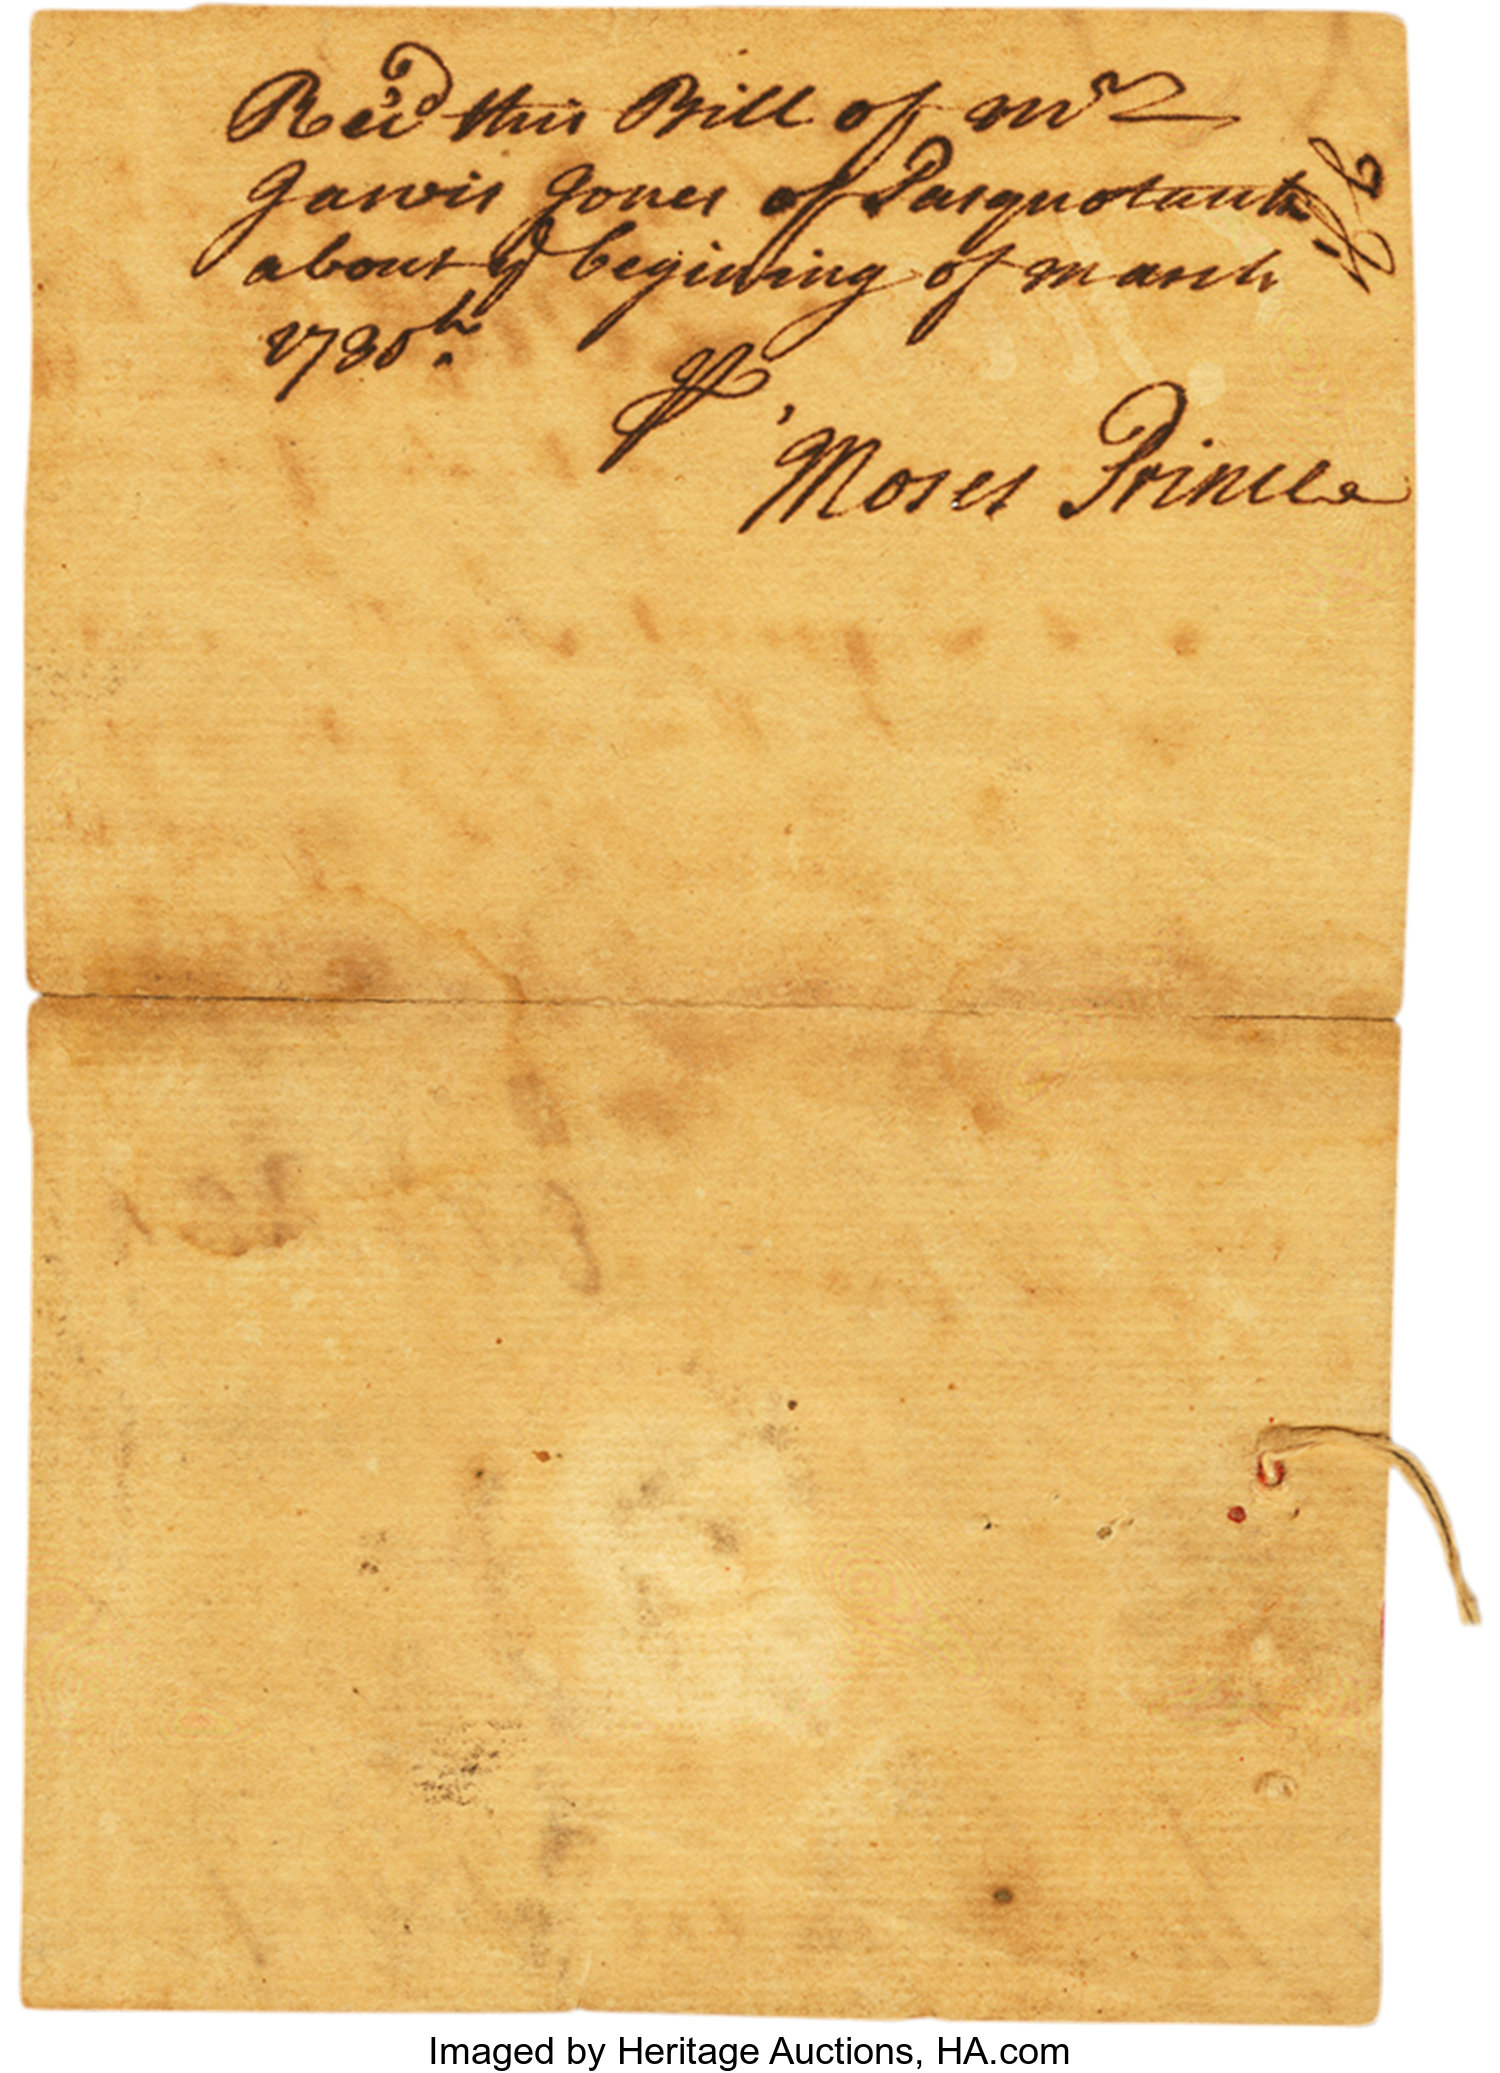 Rec'd this Bill of Mr
Jarvis Jones of Pasquotank
about ye begining of march
1730
Moses Prince
Imaged by Heritage Auctions, HA.com